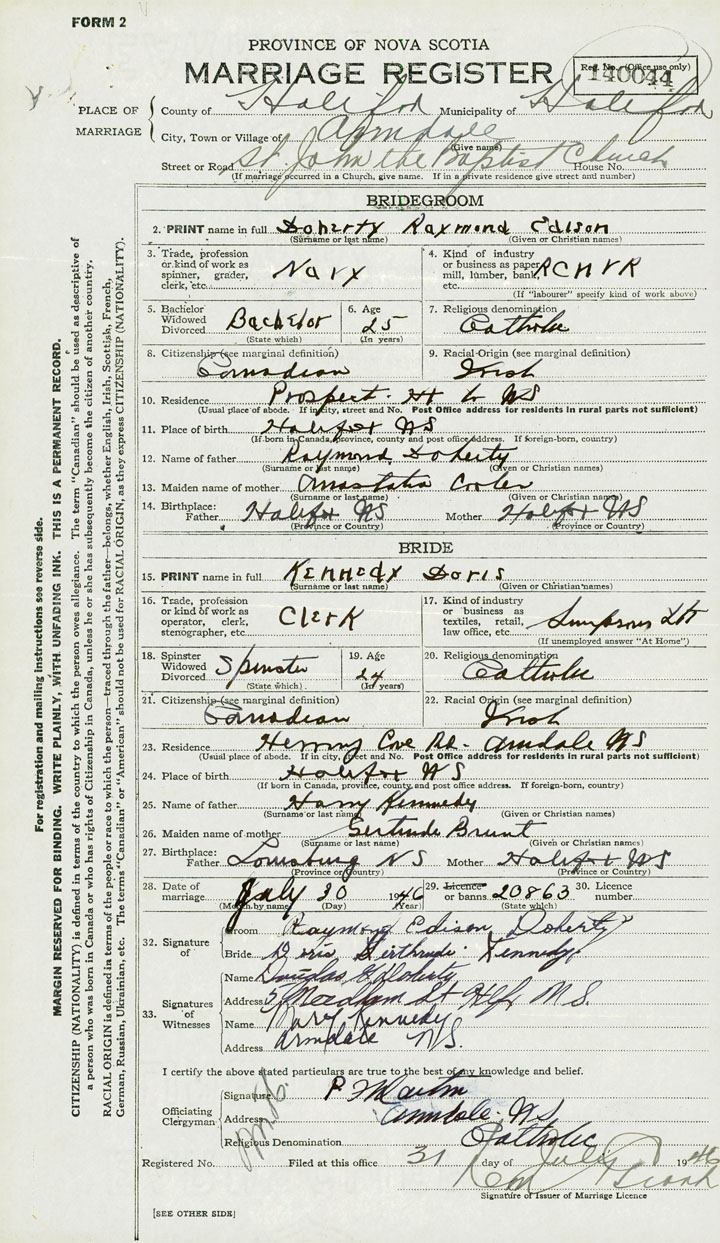 FORM 2
PROVINCE OF NOVA SCOTIA
MARRIAGE REGISTER
Reg. No. (Office use only)
140044
PLACE OF MARRIAGE
County of Halifax Municipality of Halifax
City, Town or Village of Armdale
(Give name)
Street or Road St. John the Baptist Church House No.
(If marriage occurred in a Church, give name. If in a private residence give street and number)
BRIDEGROOM
2. PRINT name in full Doherty Raymond Edison
(Surname or last name) (Given or Christian names)
3. Trade, profession or kind of work as spinner, grader, clerk, etc. Navy
4. Kind of industry or business as paper mill, lumber, bank, etc. RCNVR
(If "labourer" specify kind of work above)
5. Bachelor Widowed Divorced Bachelor
(State which)
6. Age 25
(In years)
7. Religious denomination Catholic
8. Citizenship (see marginal definition) Canadian
9. Racial-Origin (see marginal definition) Irish
10. Residence Prospect. NS
(Usual place of abode. If in city, street and No. Post Office address for residents in rural parts not sufficient)
11. Place of birth Halifax NS
(If born in Canada, province, county and post office address. If foreign-born, country)
12. Name of father Raymond Doherty
(Surname or last name) (Given or Christian names)
13. Maiden name of mother Anastatia
(Surname or last name) (Given or Christian names)
14. Birthplace: Father Halifax NS Mother Halifax NS
(Province or Country) (Province or Country)
BRIDE
15. PRINT name in full Kennedy Doris
(Surname or last name) (Given or Christian names)
16. Trade, profession or kind of work as operator, clerk, stenographer, etc. Clerk
17. Kind of industry or business as textiles, retail, law office, etc. Simpsons Ltd
(If unemployed answer "At Home")
18. Spinster Widowed Divorced Spinster
(State which)
19. Age 24
(In years)
20. Religious denomination Catholic
21. Citizenship (see marginal definition) Canadian
22. Racial Origin (see marginal definition) Irish
23. Residence Herring Cove Rd. Armdale NS
(Usual place of abode. If in city, street and No. Post Office address for residents in rural parts not sufficient)
24. Place of birth Halifax NS
(If born in Canada, province, county, and post office address. If foreign-born, country)
25. Name of father Harry Kennedy
(Surname or last name) (Given or Christian names)
26. Maiden name of mother Gertrude Brunt
(Surname or last name) (Given or Christian names)
27. Birthplace: Father Louisburg NS Mother Halifax NS
(Province or Country) (Province or Country)
28. Date of marriage July 30 1946
(Month by name) (Day) (Year)
29. Licence or banns 20863
(State which)
30. Licence number
32. Signature of
Groom Raymond Edison Doherty
Bride Doris Gertrude Kennedy
33. Signatures of Witnesses
Name Douglas E Doherty
Address St Hfx N.S.
Name Mary Kennedy
Address Armdale N.S.
I certify the above stated particulars are true to the best of my knowledge and belief.
Officiating Clergyman
Signature P Martin
Address Armdale. N.S
Religious Denomination Catholic
Registered No. Filed at this office 31 day of July 1946
Signature of Issuer of Marriage Licence
[SEE OTHER SIDE]
For registration and mailing instructions see reverse side.
MARGIN RESERVED FOR BINDING. WRITE PLAINLY, WITH UNFADING INK. THIS IS A PERMANENT RECORD.
CITIZENSHIP (NATIONALITY) is defined in terms of the country to which the person owes allegiance. The term "Canadian" should be used as descriptive of
a person who was born in Canada or who has rights of Citizenship in Canada, unless he or she has subsequently become the citizen of another country.
RACIAL ORIGIN is defined in terms of the people or race to which the person—traced through the father—belongs, whether English, Irish, Scottish, French,
German, Russian, Ukrainian, etc. The terms "Canadian" or "American" should not be used for RACIAL ORIGIN, as they express CITIZENSHIP (NATIONALITY).